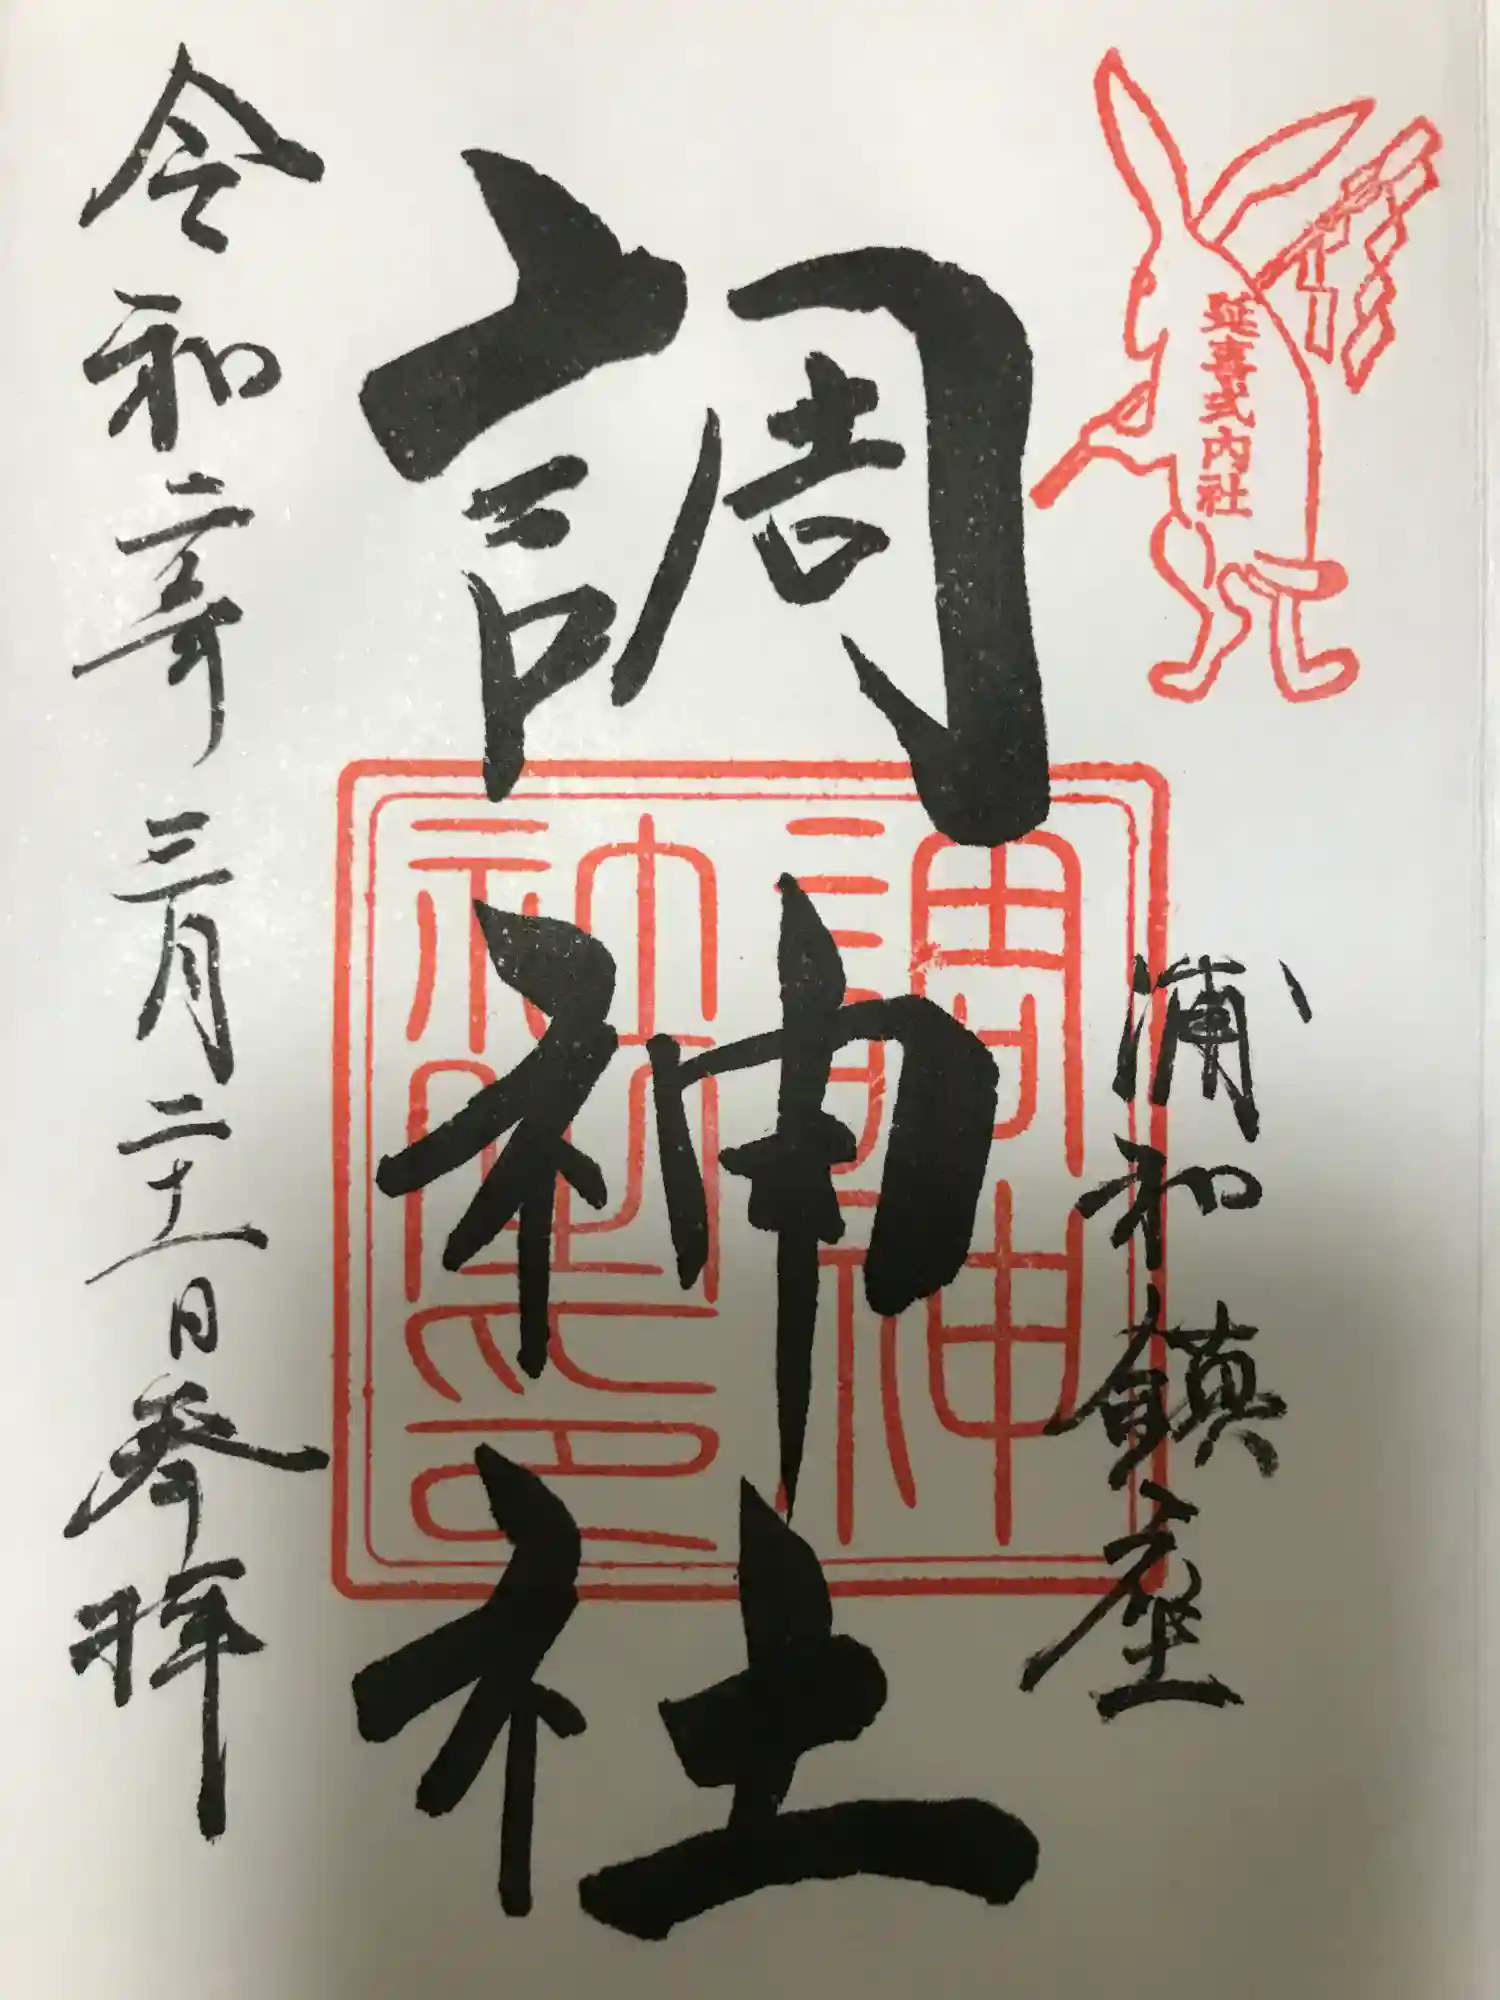 延喜式内社
浦和鎮座
調神社
調神
令和二年三月二十一日参拝